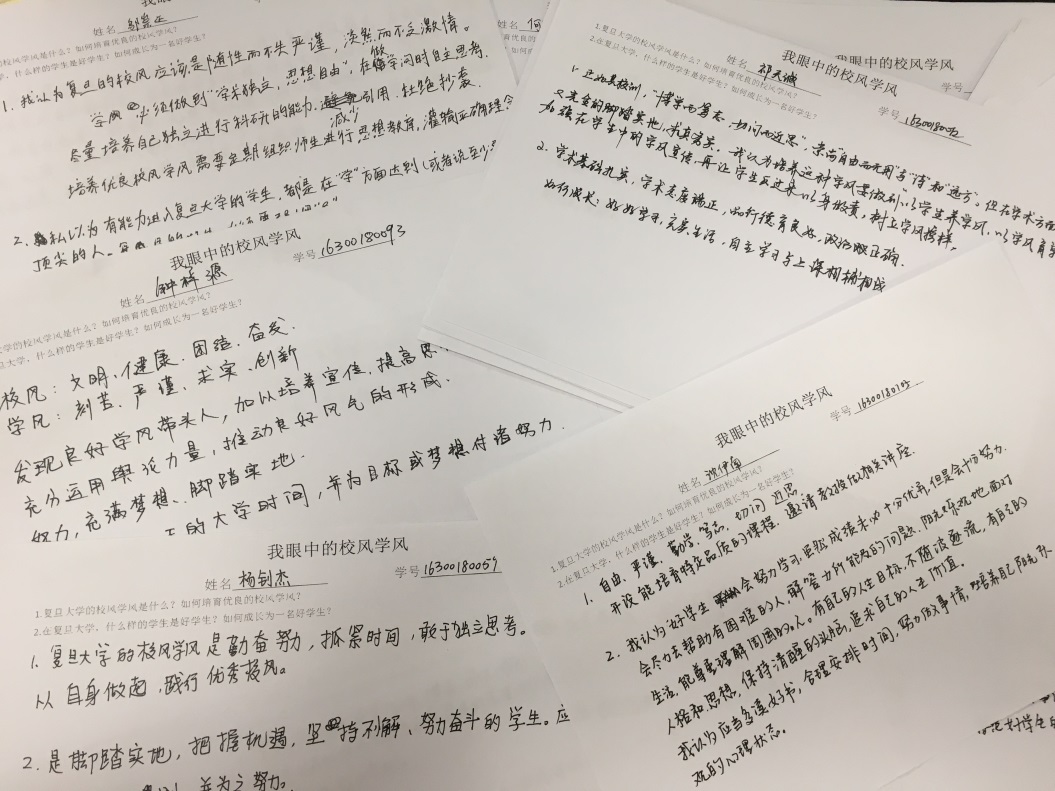 我眼
姓名
校风学风是什么？如何培育优良的校风学风？
什么样的学生是好学生？如何成长为一名好学生？
1. 我认为复旦的校风应该是随性而不失严谨，淡然而不乏激情。
学风必须做到“学术独立，思想自由”，在做学问时自主思考，
尽量培养自己独立进行科研的能力，减少引用，杜绝抄袭。
培养优良校风学风需要定期组织师生进行思想教育，灌输正确理念
2. 私以为有能力进入复旦大学的学生，都是在“学”方面达到（或者说至少
顶尖的人。
我眼中的校风学风
姓名 钟梓源
学号 16300180093
大学的校风学风是什么？如何培育优良的校风学风？
旦大学，什么样的学生是好学生？如何成长为一名好学生？
校风：文明、健康、团结、奋发.
学风：刻苦、严谨、求实、创新
发现良好学风带头人，加以培养宣传，提高思
充分运用舆论力量，推动良好风气的形成.
努力，充满梦想、脚踏实地.
的大学时间，并为目标或梦想付诸努力.
我眼中的校风学风
姓名 杨钊杰
学号 16300180059
1.复旦大学的校风学风是什么？如何培育优良的校风学风？
2.在复旦大学，什么样的学生是好学生？如何成长为一名好学生？
1. 复旦大学的校风学风是勤奋努力，抓紧时间，敢于独立思考。
从自身做起，践行优秀校风。
2. 是脚踏实地，把握机遇，坚持不懈、努力奋斗的学生。应
并为之努力。
姓名 何
我眼中的校风学风
学号
1.复旦大学的校风学风是什么？如何培育优良的校风学风？
2.在复旦大学，什么样的学生是好学生？如何成长为一名好学生？
我眼中的校风学风
姓名 祁天诚
学号
1. 正如其校训，“博学而笃志，切问而近思”，崇尚“自由而无用”与“诗”和“远方”。但在学术方面
又是会的脚踏实地，求真务实。我认为培养这种学风要做到以学生养学风，以学风育
加强在学生中的学风宣传，再让学生反过来以身做责，树立学风榜样。
2. 学术基础扎实，学术态度端正，品行德育良好，政治正确.
如何成长：好好学习，充实生活，自主学习与上课相辅相成
我眼中的校风学风
姓名 沈伊南
学号
1.复旦大学的校风学风是什么？如何培育优良的校风学风？
2.在复旦大学，什么样的学生是好学生？如何成长为一名好学生？
1. 自由、严谨、勤学、笃志、切问、近思
开设能培育特定品质的课程，邀请教授做相关讲座.
2. 我认为好学生会努力学习，虽然成绩未必十分优异，但是会十分努力.
会尽力去帮助有困难的人，解答力所能及的问题，阳光乐观地面对
生活，能尊重理解周围的人。有自己的人生目标，不随波逐流，有自己的
人格和思想，保持清醒的头脑，追求自己的人生价值。
我认为应当多读好书，合理安排时间，努力做事情，培养自己阳光乐
观的心理状态。
好学生